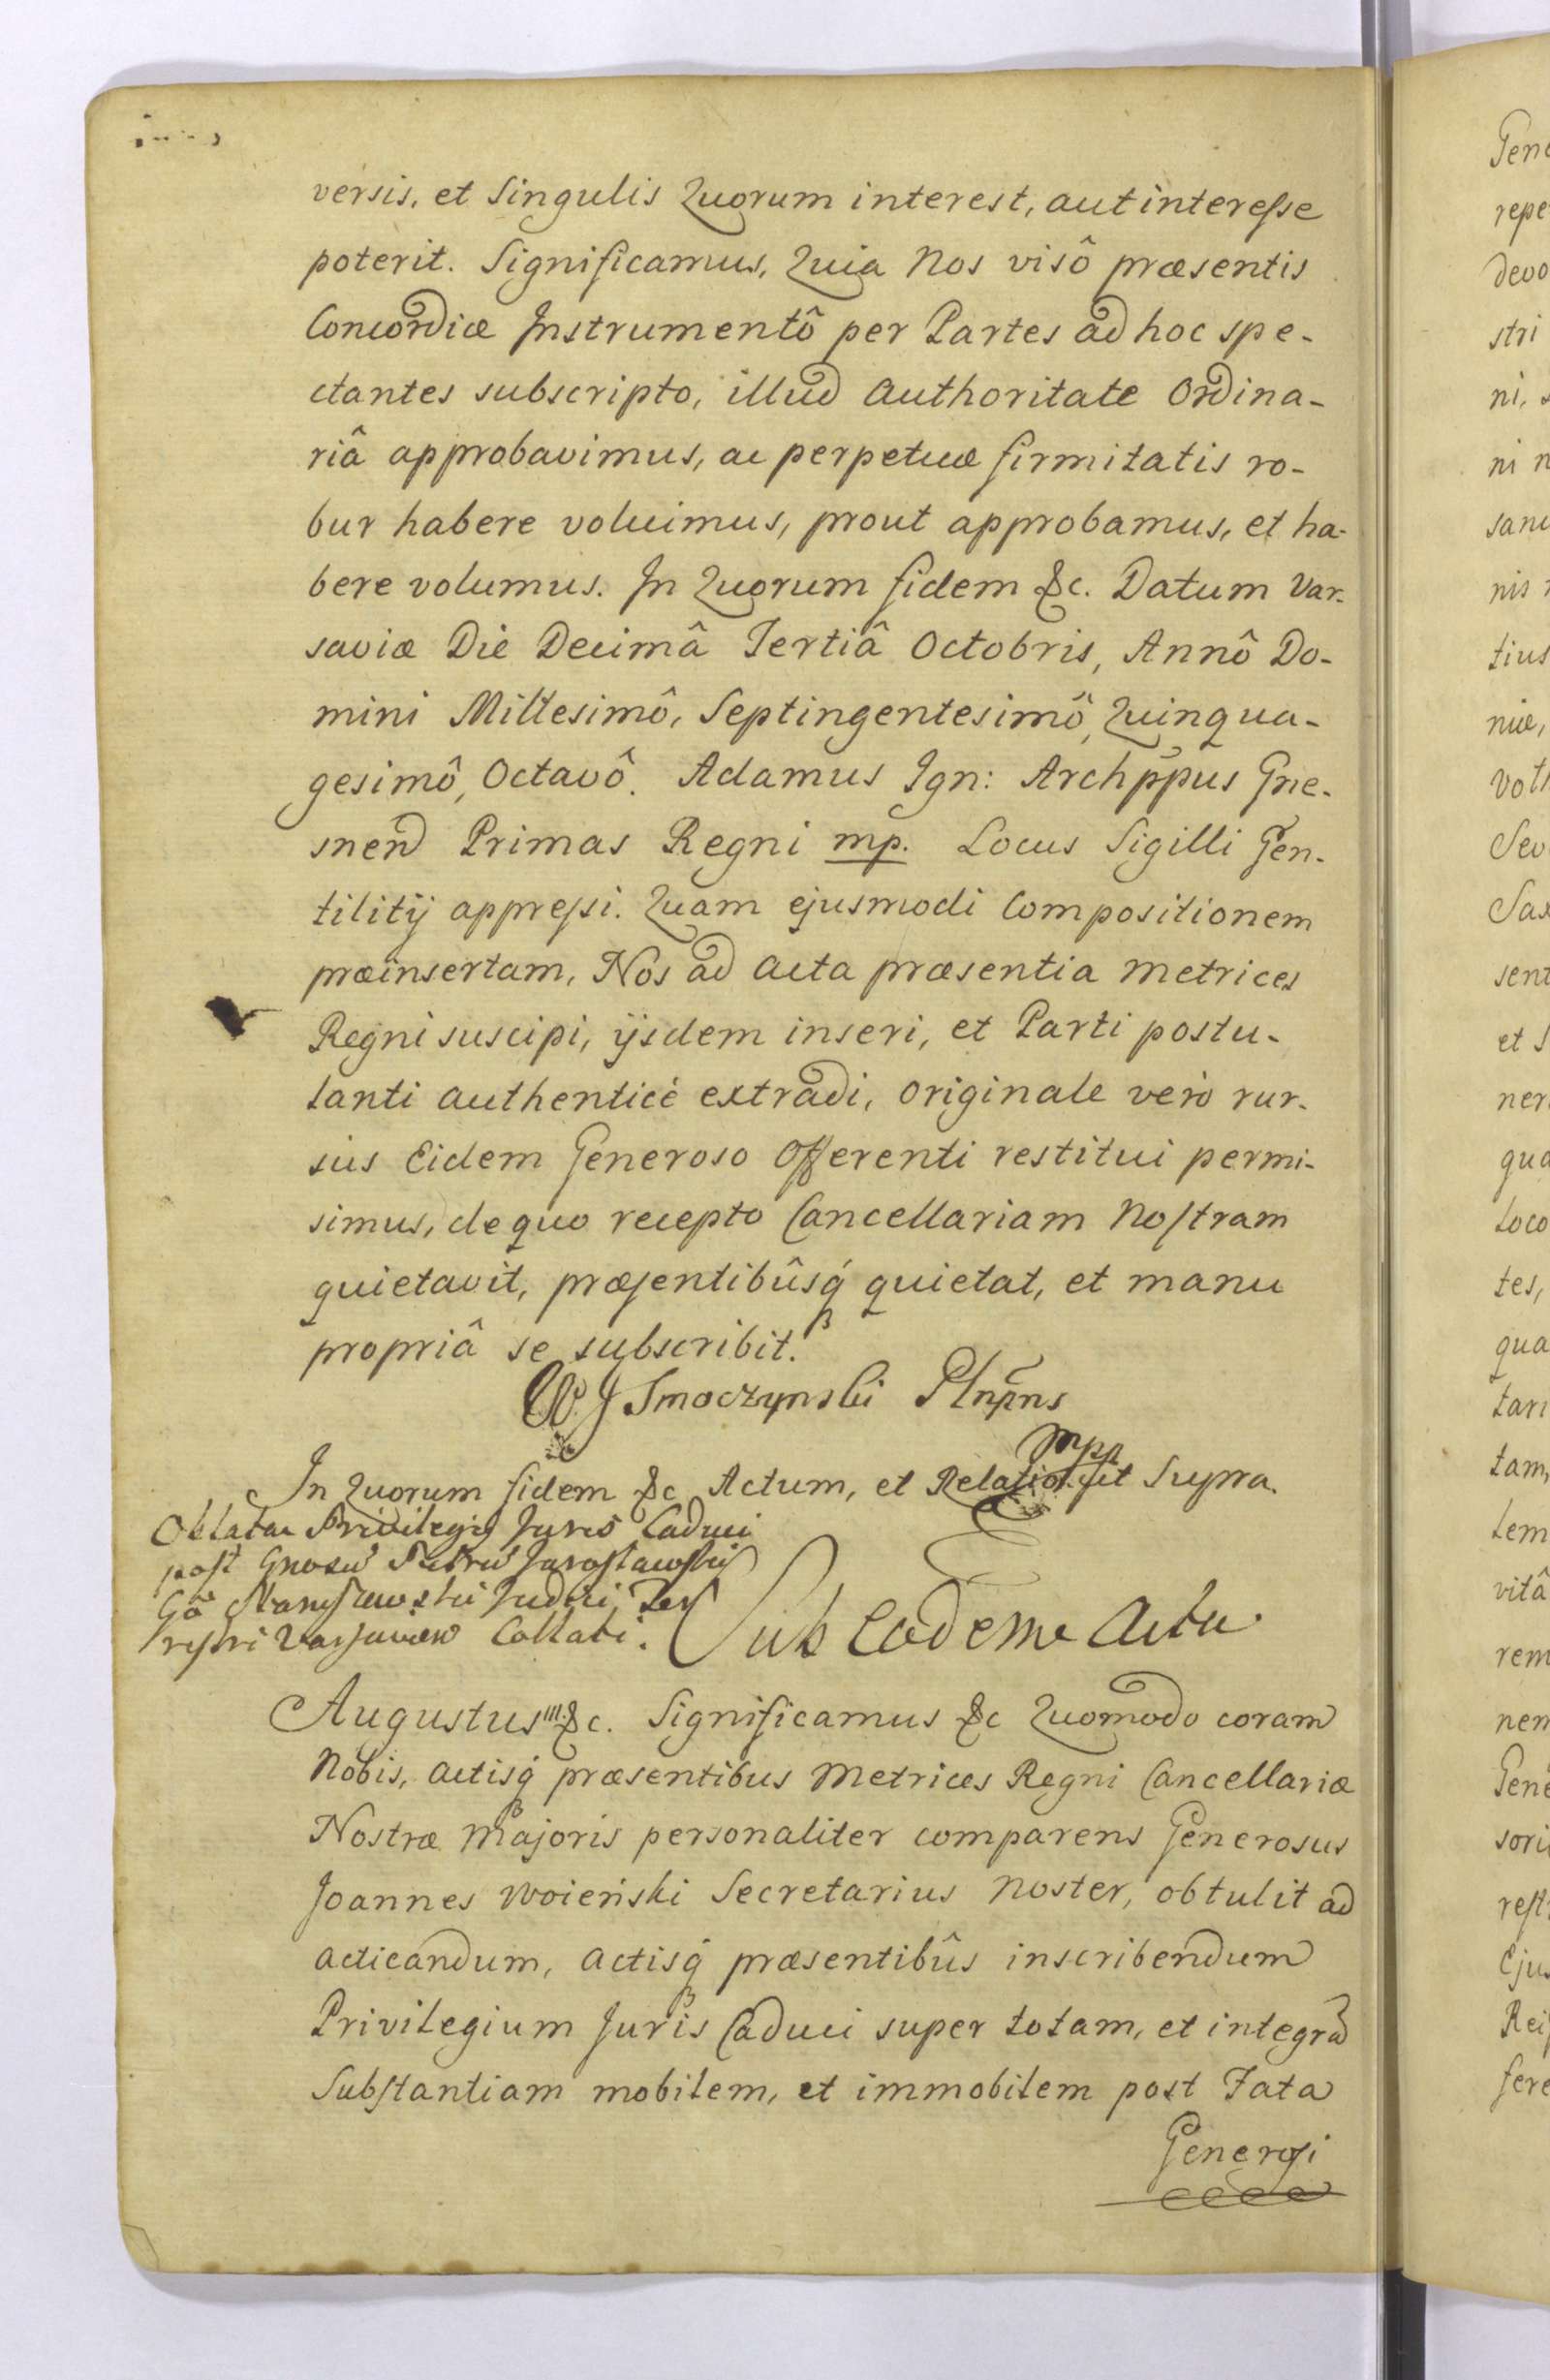 versis, et Singulis Quorum interest, aut interesse
poterit. Significamus, Quia Nos visô præsentis
Concordiæ Instrumentô per Partes ad hoc spe-
ctantes subscripto, illud Authoritate Ordina-
riâ approbavimus, ac perpetuæ firmitatis ro-
bur habere voluimus, prout approbamus, et ha-
bere volumus. In Quorum fidem &c. Datum Var-
saviæ Die Decimâ Tertiâ Octobris, Annô Do-
mini Millesimô, Septingentesimô, Quinqua-
gesimô, Octavô. Adamus Ign: Archppus Gne-
snen Primas Regni mp. Locus Sigilli Gen-
tilitij appressi. Quam ejusmodi Compositionem
præinsertam, Nos ad Acta præsentia Metrices
Regni suscipi, ijsdem inseri, et Parti postu-
lanti authenticè extradi, originale verò rur-
sus Eidem Generoso Offerenti restitui permi-
simus, de quo recepto Cancellariam Nostram
quietavit, præsentibûsq́ quietat, et manu
propriâ se subscribit.
W J Smoczynski Plnpns
mpp
In Quorum fidem &c Actum, et Relatio. ut Supra.
Oblatae Privilegij Juris Caduci
post Gnosu Petru Jarosławski
Gō Staniszewski Judici Ter
restri Varsavien Collati.
Sub Eodem Actu
Augustus III. &c. Significamus &c Quomodo coram
Nobis, Actisq́ præsentibus Metrices Regni Cancellariæ
Nostræ Majoris personaliter comparens Generosus
Joannes Woieński Secretarius Noster, obtulit ad
acticandum, Actisq́ præsentibûs inscribendum
Privilegium Juris Caduci super totam, et integrā
Substantiam mobilem, et immobilem post Fata
Generosi
Gen
repe
devo
stri
ni,
ni n
sanc
nis
tius
niæ,
Voth
Sev
Sax
sent
et S
ner
qua
Loco
tes,
qua
tari
tam,
lem
vitâ
rem
nem
Gene
sori
rest
Ejus
Rei
fere